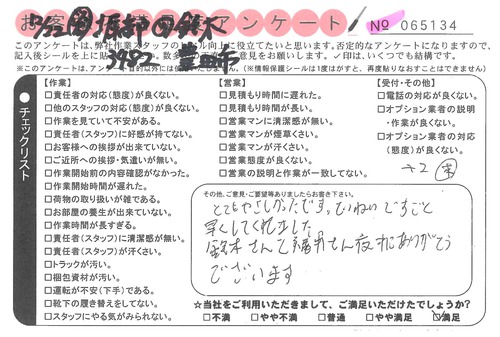 お客 アンケート № 065134
3482 豊田市
このアンケートは、弊社作業スタッフのレベル向上に役立てたいと思います。否定的なアンケートになりますので、
記入後シールを上に貼 意見をお願いします。✓印は、いくつでも結構です。
※このアンケートは、 目的以外には使 (※情報保護シールは1度がすと、再度貼りなおすことはできません)
チェックリスト
【作業】
□責任者の対応(態度)が良くない。
□他のスタッフの対応(態度)が良くない。
□作業を見ていて不安がある。
□責任者(スタッフ)に好感が持てない。
□お客様への挨拶が出来ていない。
□ご近所への挨拶・気遣いが無い。
□作業開始前の内容確認がなかった。
□作業開始時間が遅れた。
□荷物の取り扱いが雑である。
□お部屋の養生が出来ていない。
□作業時間が長すぎる。
□責任者(スタッフ)に清潔感が無い。
□責任者(スタッフ)が汗くさい。
□トラックが汚い。
□梱包資材が汚い。
□運転が不安(下手)である。
□靴下の履き替えをしてない。
□スタッフにやる気がみられない。
【営業】
□見積もり時間に遅れた。
□見積もり時間が長い。
□営業マンに清潔感が無い。
□営業マンが煙草くさい。
□営業マンが汗くさい。
□営業態度が良くない。
□営業の説明と作業が一致してない。
【受付・その他】
□電話の対応が良くない。
□オプション業者の説明
・作業が良くない。
□オプション業者の対応
(態度)が良くない。
その他、ご意見・ご要望等ありましたらお書き下さい。
とてもやさしかったです。ていねいですごと
早くしてくれました
鈴木さんと さん ありがとう
ございます
☆当社をご利用いただきまして、ご満足いただけたでしょうか?
□不満 □やや不満 □普通 □やや満足 ☑満足